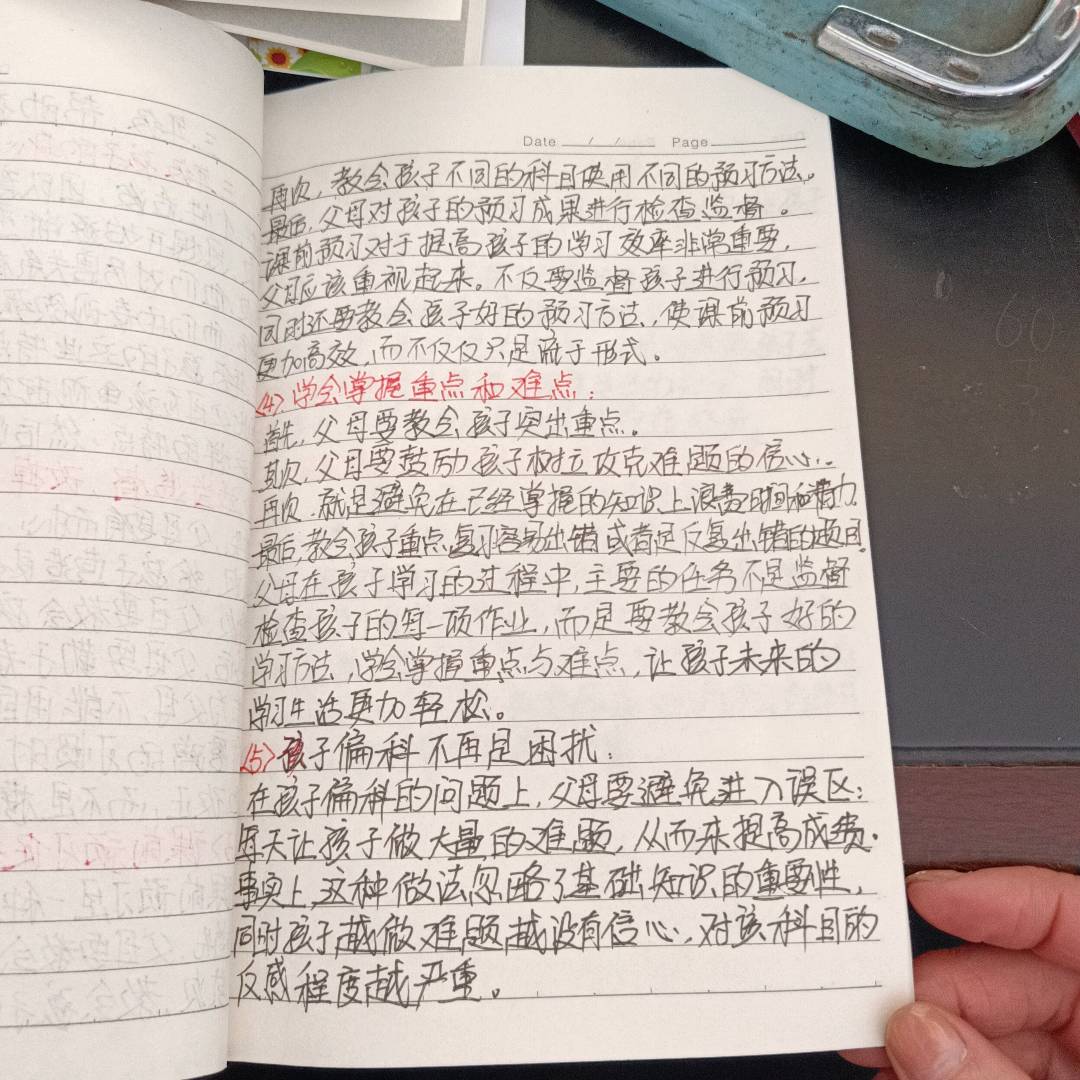 Date / / Page
再次，教会孩子不同的科目使用不同的预习方法。
最后，父母对孩子的预习成果进行检查监督。
课前预习对于提高孩子的学习效率非常重要，
父母应该重视起来。不仅要监督孩子进行预习，
同时还要教会孩子好的预习方法，使课前预习
更加高效，而不仅仅只是流于形式。
<4>学会掌握重点和难点：
首先，父母要教会孩子突出重点。
其次，父母要鼓励孩子树立攻克难题的信心。
再次，就是避免在已经掌握的知识上浪费时间和精力.
最后，教会孩子重点复习容易出错或者是反复出错的题目.
父母在孩子学习的过程中，主要的任务不是监督
检查孩子的每一项作业，而是要教会孩子好的
学习方法，学会掌握重点与难点，让孩子未来的
学习生活更加轻松。
<5>孩子偏科不再是困扰：
在孩子偏科的问题上，父母要避免进入误区：
每天让孩子做大量的难题，从而来提高成费.
事实上，这种做法忽略了基础知识的重要性，
同时孩子越做难题越没有信心，对该科目的
反感程度越严重。